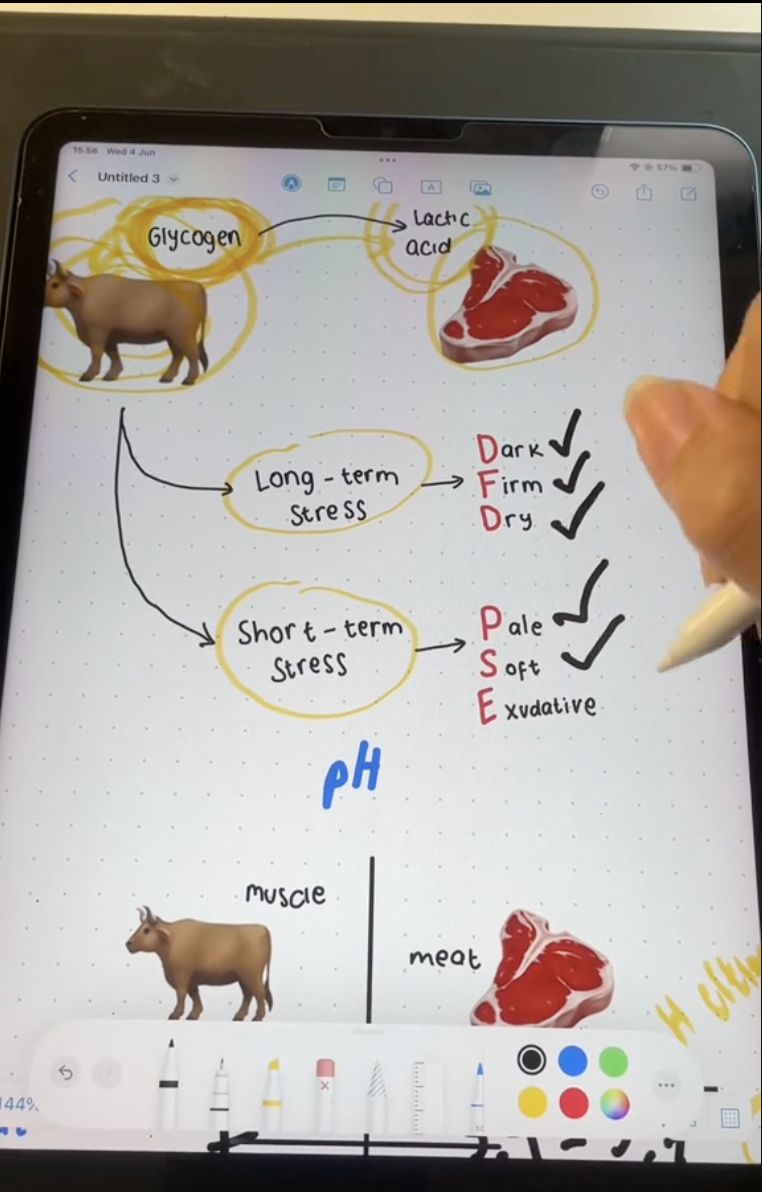 15.58 Wed 4 Jun
57%
Untitled 3
Glycogen
Lactic
acid
Long-term
stress
Dark
Firm
Dry
Short-term
stress
Pale
Soft
Exudative
pH
muscle
meat
144%